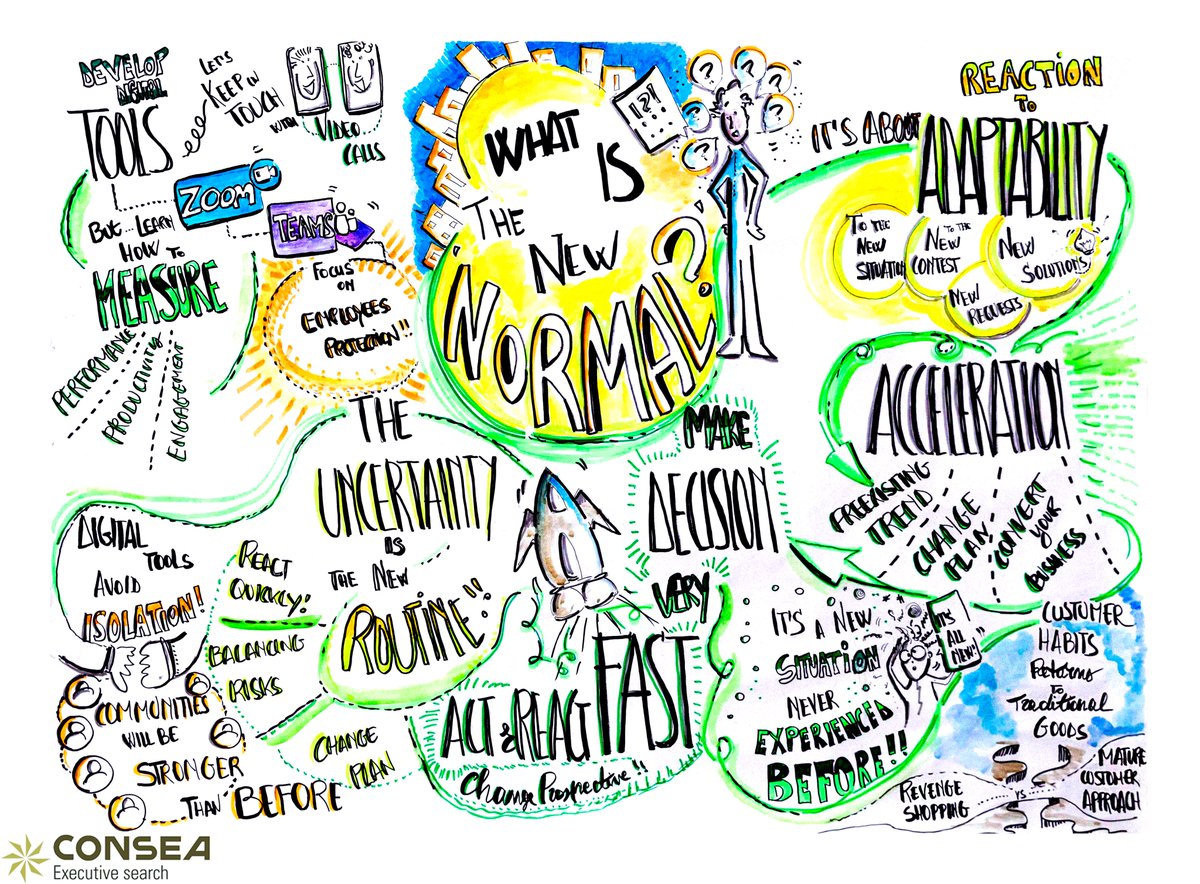 DEVELOP
DIGITAL
TOOLS
LET'S
KEEP IN
TOUCH
WITH VIDEO
CALLS
ZOOM
TEAMS
BUT... LEARN
HOW TO
MEASURE
PERFORMANCE
PRODUCTIVITY
ENGAGEMENT
FOCUS
ON
EMPLOYEES
PROTECTION!!
WHAT
IS
THE
NEW
NORMAL?
!?!
? ? ? ? ? ?
REACTION
TO
IT'S ABOUT
ADAPTABILITY
TO THE
NEW
SITUATION
TO THE
NEW
CONTEST
NEW
SOLUTIONS
NEW
REQUESTS
ACCELERATION
PREEXISTING
TREND
CHANGE
PLAN
CONVERT
YOUR
BUSINESS
THE
UNCERTAINTY
IS
THE NEW
ROUTINE!!
REACT
QUICKLY!
BALANCING
RISKS
CHANGE
PLAN
DIGITAL
TOOLS
AVOID
ISOLATION!
COMMUNITIES
WILL BE
STRONGER
THAN BEFORE
MAKE
DECISION
VERY
FAST
ACT & REACT
Change Prospective!!
IT'S A NEW
SITUATION
NEVER
EXPERIENCED
BEFORE!!
IT'S
ALL
NEW!
CUSTOMER
HABITS
Returns
to
Traditional
GOODS
REVENGE
SHOPPING
VS
MATURE
CUSTOMER
APPROACH
CONSEA
Executive search